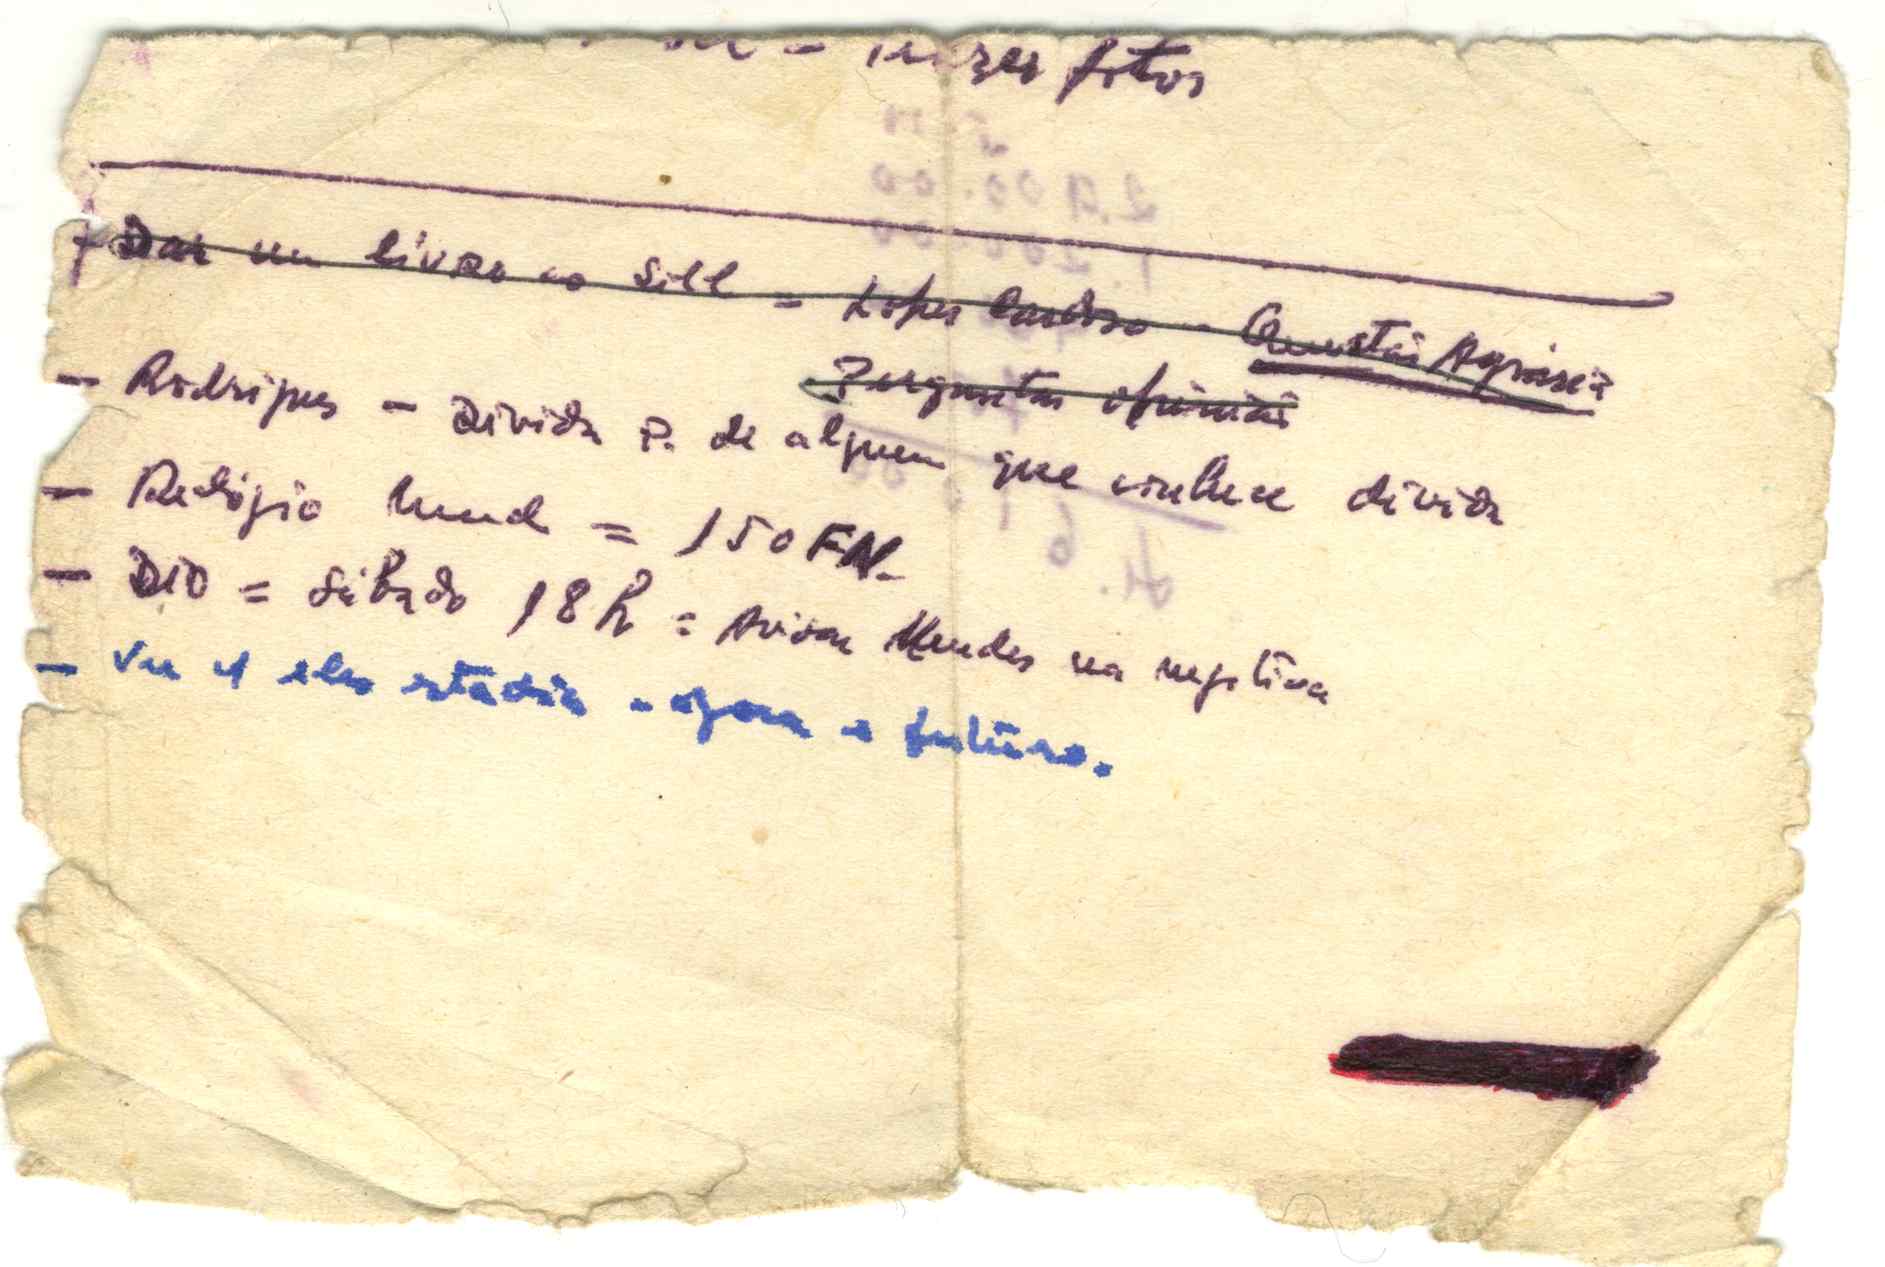 fotos
- Dar um livro ao Sill = Lopes Cardoso - Questão Agrária
Perguntar opinião
- Rodrigues - Divida P. de alguem que divida
- Relógio = 150 FN.
- DIO = Sábado 18h = Avisar Mendes na negativa
- Ver c/ eles estadia - agora e futuro.